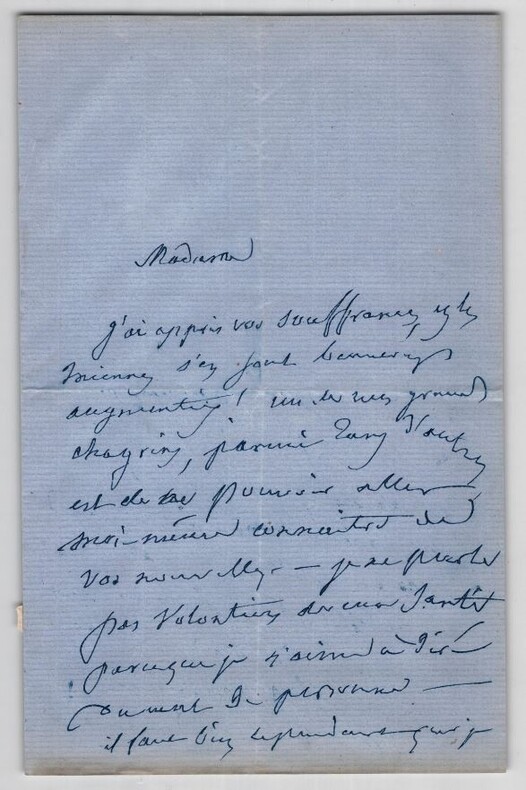 Madame
J'ai appris vos souffrances, et les
miennes s'en sont beaucoup
augmentées! un de mes grands
chagrins, parmi tant d'autres
est de ne pouvoir aller
moi-même connaitre de
vos nouvelles — je ne parle
pas volontiers de ma santé
parceque je n'aime à dire
du mal de personne —
il faut bien cependant que je